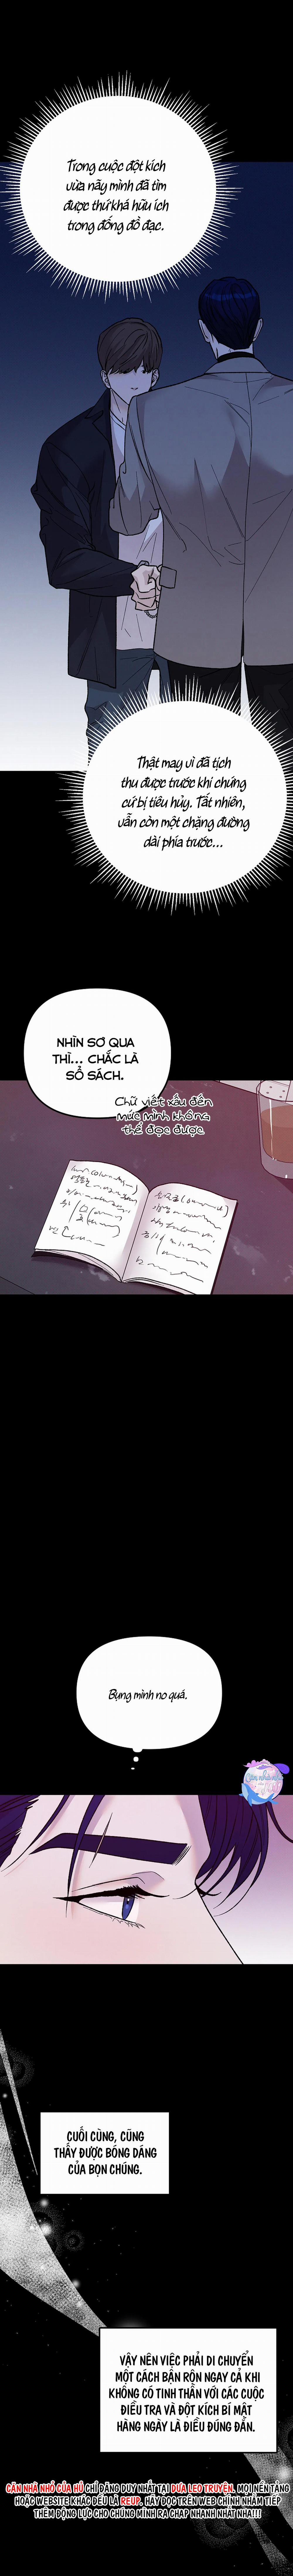 Trong cuộc đột kích
vừa nãy mình đã tìm
được thứ khá hữu ích
trong đống đồ đạc.
Thật may vì đã tịch
thu được trước khi chứng
cứ bị tiêu hủy. Tất nhiên,
vẫn còn một chặng đường
dài phía trước...
NHÌN SƠ QUA
THÌ... CHẮC LÀ
SỔ SÁCH.
Chữ viết xấu đến
mức mình không
thể đọc được.
Bụng mình no quá.
CUỐI CÙNG, CŨNG
THẤY ĐƯỢC BÓNG DÁNG
CỦA BỌN CHÚNG.
VẬY NÊN VIỆC PHẢI DI CHUYỂN
MỘT CÁCH BẬN RỘN NGAY CẢ KHI
KHÔNG CÓ TINH THẦN VỚI CÁC CUỘC
ĐIỀU TRA VÀ ĐỘT KÍCH BÍ MẬT
HÀNG NGÀY LÀ ĐIỀU ĐÚNG ĐẮN.
CĂN NHÀ NHỎ CỦA HỦ CHỈ ĐĂNG DUY NHẤT TẠI DƯA LEO TRUYỆN. MỌI NỀN TẢNG
HOẶC WEBSITE KHÁC ĐỀU LÀ REUP. HÃY ĐỌC TRÊN WEB CHÍNH NHẰM TIẾP
THÊM ĐỘNG LỰC CHO CHÚNG MÌNH RA CHAP NHANH NHẤT NHA!!!